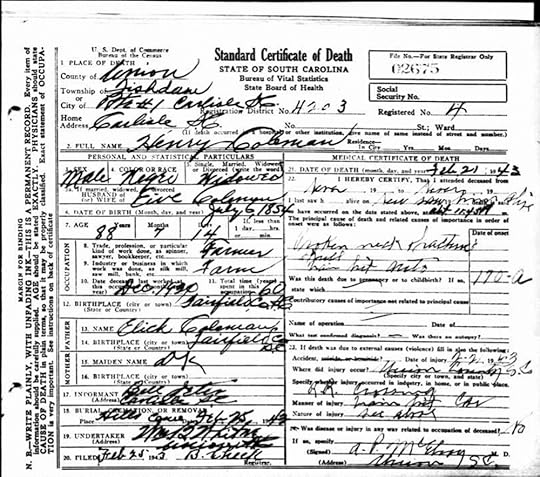 U. S. Dept. of Commerce
Bureau of the Census
Standard Certificate of Death
STATE OF SOUTH CAROLINA
Bureau of Vital Statistics
State Board of Health
File No.—For State Registrar Only
02675
Social
Security No.
1 PLACE OF DEATH
County of Union
Township of Fishdam
or Rt #1 Carlisle S.C.
Registration District No. 4203 Registered No. 4
Home Address Carlisle S.C. St.; Ward
(If death occurred in hospital or other institution, give name of same instead of street and number.)
2 FULL NAME Henry Coleman Residence— In City Yrs. Mos. Days
PERSONAL AND STATISTICAL PARTICULARS
3. SEX 4. COLOR OR RACE 5. Single, Married, Widowed, or Divorced (write the word)
Male Negro Widowed
5a. If married, widowed, or divorced
HUSBAND of
(or) WIFE of Coleman
6. DATE OF BIRTH (Month, day, and year) July 6 1854
7. AGE Years Months Days If less than 1 day, hrs. or min.
88 14
OCCUPATION
8. Trade, profession, or particular kind of work done, as spinner, sawyer, bookkeeper, etc. Farmer
9. Industry or business in which work was done, as silk mill, saw mill, bank, etc. Farm
10. Date deceased last worked at
11. Total time (years) spent in this occupation 60
12. BIRTHPLACE (city or town) Fairfield Co S.C.
(State or Country)
FATHER
13. NAME Elick Coleman
14. BIRTHPLACE (city or town) Fairfield Co
(State or Country) S.C.
MOTHER
15. MAIDEN NAME D.K.
16. BIRTHPLACE (city or town)
(State or Country)
17. INFORMANT
(Address) Carlisle S.C.
18. BURIAL, CREMATION, OR REMOVAL
Place Date Feb. 25, 1943
19. UNDERTAKER
(Address)
20. FILED Feb 25 1943 B.
Registrar.
MEDICAL CERTIFICATE OF DEATH
21. DATE OF DEATH (month, day, and year) Feb 21 1943
22. I HEREBY CERTIFY, That I attended deceased from
never 19 to never 19
I last saw h alive on
have occurred on the date stated above, at
The principal cause of death and related causes of importance in order of onset were as follows:
Date of onset
Broken neck fractured
skull
train hit auto
Was this death due to pregnancy or to childbirth? If so, state which 170-a
Contributory causes of importance not related to principal cause
Name of operation
What test confirmed diagnosis? Was there an autopsy?
23. If death was due to external causes (violence) fill in also the following:
Accident, suicide or homicide? Date of injury 2-21 1943
Where did injury occur? Union County S.C.
(Specify city or town, and state)
Specify whether injury occurred in industry, in home, or in public place.
R.R. crossing
Manner of injury train hit car
Nature of injury see above
24. Was disease or injury in any way related to occupation of deceased? No
If so, specify
(Signed) M. D.
(Address) Union S.C.
MARGIN FOR BINDING
N. B.—WRITE PLAINLY, WITH UNFADING INK—THIS IS A PERMANENT RECORD. Every item of information should be carefully supplied. AGE should be stated EXACTLY. PHYSICIANS should state CAUSE OF DEATH in plain terms, so that it may be properly classified. Exact statement of OCCUPATION is very important. See instructions on back of certificate